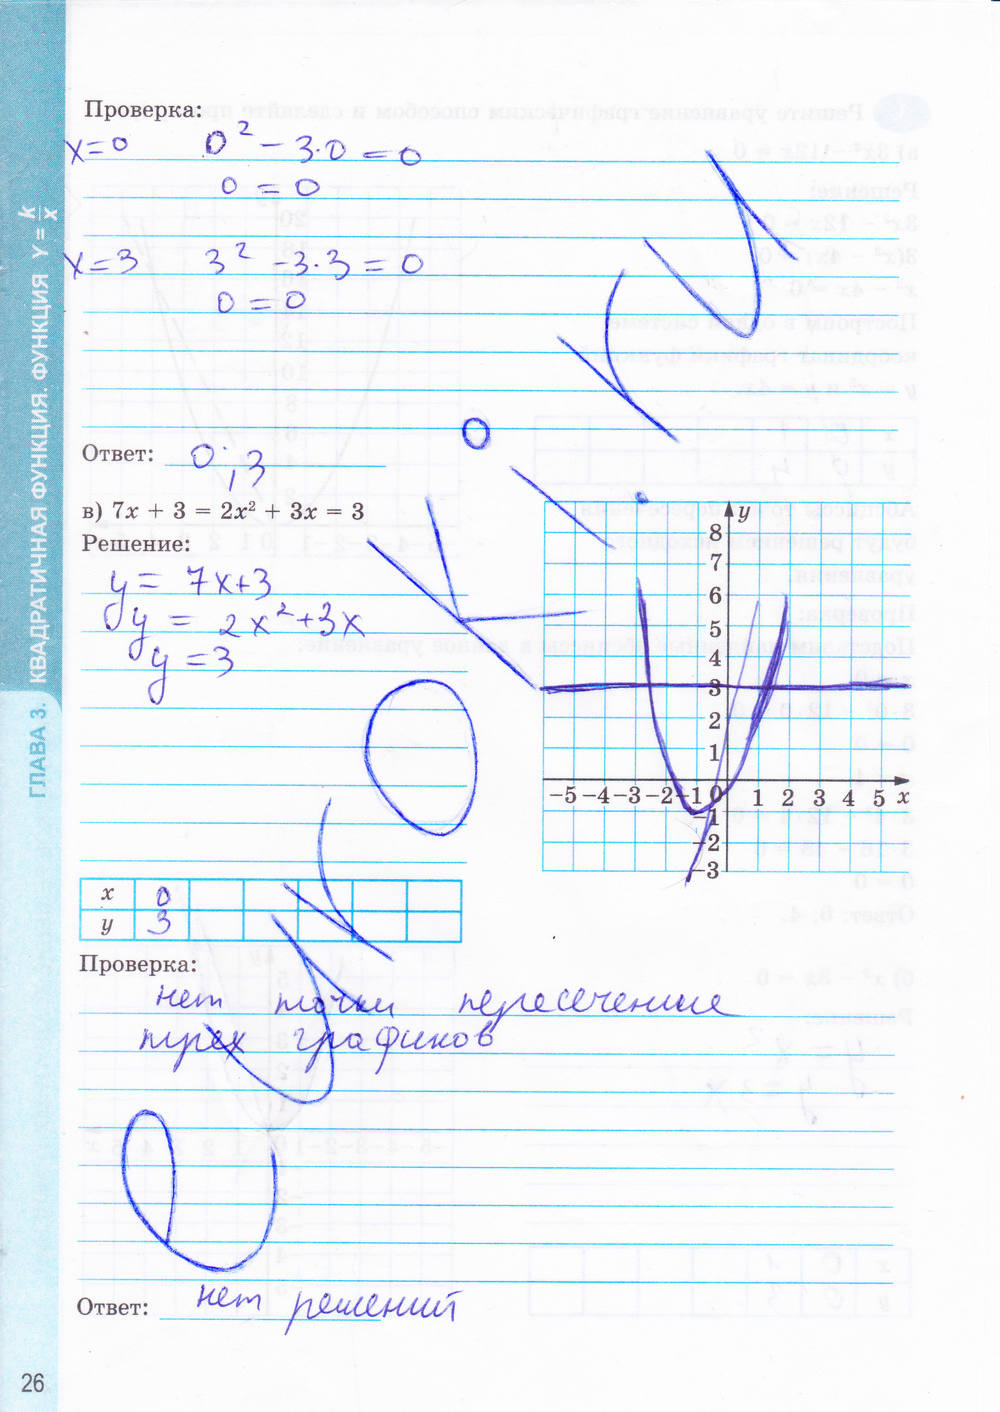 ГЛАВА 3. КВАДРАТИЧНАЯ ФУНКЦИЯ. ФУНКЦИЯ Y = k/x
Проверка:
x=0 0² - 3·0 = 0
0 = 0
x=3 3² - 3·3 = 0
0 = 0
Ответ: 0; 3
в) 7x + 3 = 2x² + 3x = 3
Решение:
y = 7x+3
y = 2x²+3x
y = 3
y
8
7
6
5
4
3
2
1
-5 -4 -3 -2 -1 0 1 2 3 4 5 x
-1
-2
-3
x 0
y 3
Проверка:
нет точки пересечение
трех графиков
Ответ: нет решений
26